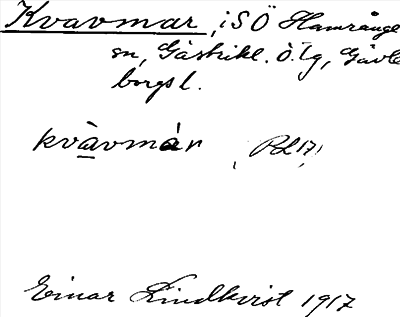 Kvavmar, i SÖ Hamrånge
sn, Gästrikl. ö. lg, Gävle
borgs l.
kvàvmár
Einar Lindkvist 1917